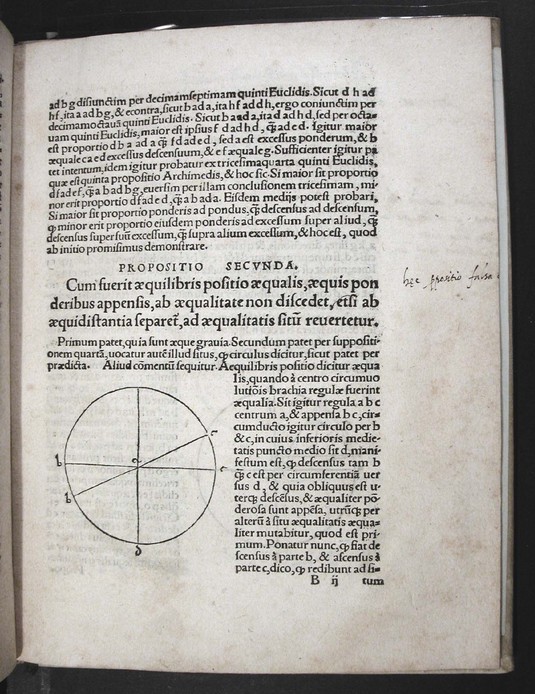 ad b g disiunctim per decimamseptimam quinti Euclidis. Sicut d h ad
h f, ita a ad b g, & econtra, sicut b ad a, ita h f ad d h, ergo coniunctim per
decimamoctauā quinti Euclidis. Sicut b a ad a, ita d ad h d, sed per octa-
uam quinti Euclidis, maior est ipsius f d ad h d, q̃ ad e d. Igitur maior
est proportio d b a ad a q̃ f d ad e d, sed a est excessus ponderum, & b
æquale c a e d excessus descensuum, & e f æquale g. Sufficienter igitur pa
tet intentum, idem igitur probatur ex tricesimaquarta quinti Euclidis,
quæ est quinta propositio Archimedis, & hoc sic. Si maior sit proportio
d f ad e f, q̃ a b ad b g, euersim per illam conclusionem tricesimam, mi-
nor erit proportio d f ad e d, q̃ a b ad a. Eisdem medijs potest probari,
Si maior sit proportio ponderis ad pondus, q̃ descensus ad descensum,
q̃ minor erit proportio eiusdem ponderis ad excessum super aliud, q̃
descensus super suū excessum, q̃ supra alium excessum, & hoc est, quod
ab initio promisimus demonstrare.
PROPOSITIO SECVNDA.
Cum fuerit æquilibris positio æqualis, æquis pon
deribus appensis, ab æqualitate non discedet, etsi ab
æquidistantia separet̃, ad æqualitatis sitū reuertetur.
hęc ppositio falsa
Primum patet, quia sunt æque grauia. Secundum patet per suppositi-
onem quartā, uocatur autē illud situs, q̃ circulus dicitur, sicut patet per
prædicta. Aliud cōmentū sequitur. Aequilibris positio dicitur æqua
lis, quando à centro circumuo
lutiōis brachia regulæ fuerint
æqualia. Sit igitur regula a b c
centrum a, & appensa b c, cir=
cumducto igitur circulo per b
& c, in cuius inferioris medie-
tatis puncto medio sit d, mani-
festum est, q̃ descensus tam b
q̃ c est per circumferentiā uer
sus d, & quia obliquus est u-
terq; descēsus, & æqualiter pō-
derosa sunt appēsa, utrūq; per
alterū à situ æqualitatis æqua=
liter mutabitur, quod est pri-
mum. Ponatur nunc, q̃ fiat de
scensus à parte b, & ascensus à
parte c, dico, q̃ redibunt ad si-
B ij tum
a
c
b
c
b
d